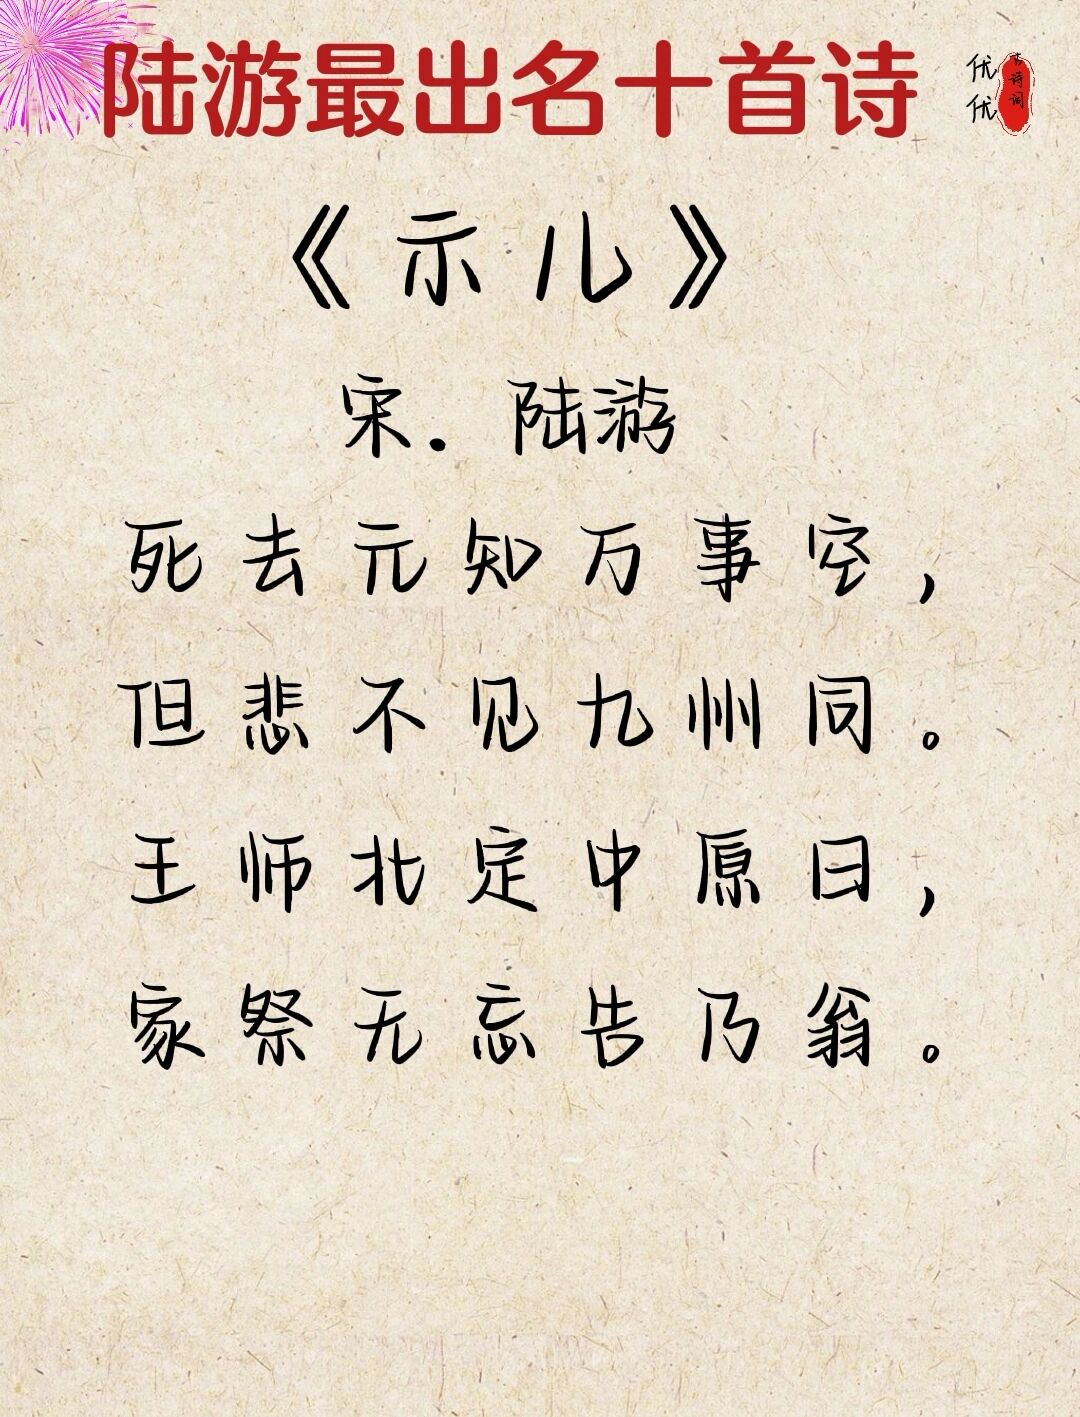 陆游最出名十首诗
优优
古诗词
《示儿》
宋.陆游
死去元知万事空，
但悲不见九州同。
王师北定中原日，
家祭无忘告乃翁。